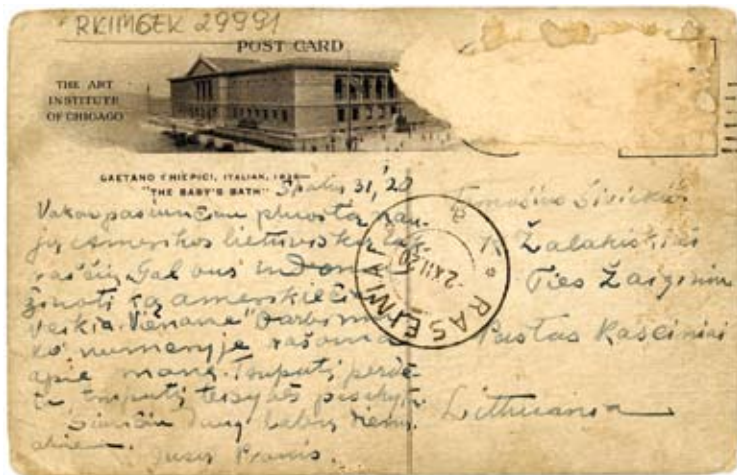 RKIMGEK 29991
POST CARD
THE ART
INSTITUTE
OF CHICAGO
GAETANO CHIEPICI, ITALIAN, 1838—
"THE BABY'S BATH"
Spalių 31, '20
Vakar pasiunčiau pluoštą nau-
jų Amerikos lietuviškų laik-
raščių. Gal bus
žinoti ką amerikiečiai
veikia. Viename "Darbinin-
ko" numeryje rašoma
apie mane.
Siunčiu daug labų dienų
Jūsų Pranis.
RASEINIAI
-2.XII.20
Žalakiškiai
Ties Žaiginiu
Pastas Raseiniai
Lithuania